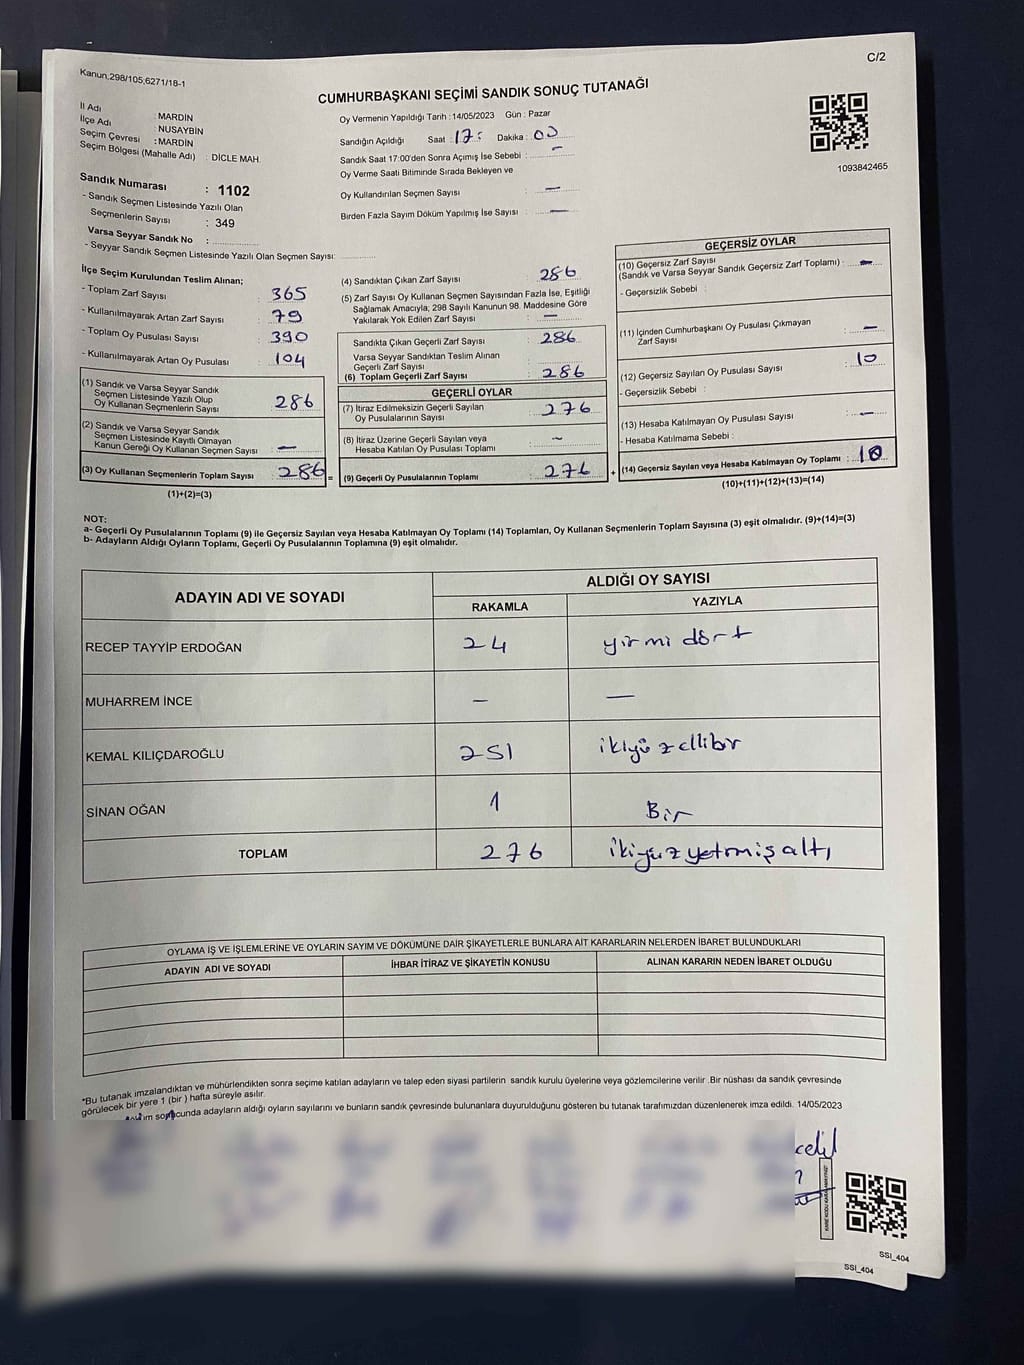 Kanun,298/105,6271/18-1
C/2
CUMHURBAŞKANI SEÇİMİ SANDIK SONUÇ TUTANAĞI
İl Adı : MARDİN
İlçe Adı : NUSAYBİN
Seçim Çevresi : MARDİN
Seçim Bölgesi (Mahalle Adı) : DİCLE MAH.
Sandık Numarası : 1102
- Sandık Seçmen Listesinde Yazılı Olan
Seçmenlerin Sayısı : 349
Varsa Seyyar Sandık No :
- Seyyar Sandık Seçmen Listesinde Yazılı Olan Seçmen Sayısı:
Oy Vermenin Yapıldığı Tarih : 14/05/2023 Gün : Pazar
Sandığın Açıldığı Saat : 17: Dakika : 00
Sandık Saat 17:00'den Sonra Açımış İse Sebebi : —
Oy Verme Saati Bitiminde Sırada Bekleyen ve
Oy Kullandırılan Seçmen Sayısı : —
Birden Fazla Sayım Döküm Yapılmış İse Sayısı : —
1093842465
İlçe Seçim Kurulundan Teslim Alınan;
- Toplam Zarf Sayısı : 365
- Kullanılmayarak Artan Zarf Sayısı : 79
- Toplam Oy Pusulası Sayısı : 390
- Kullanılmayarak Artan Oy Pusulası : 104
(1) Sandık ve Varsa Seyyar Sandık
Seçmen Listesinde Yazılı Olup
Oy Kullanan Seçmenlerin Sayısı : 286
(2) Sandık ve Varsa Seyyar Sandık
Seçmen Listesinde Kayıtlı Olmayan
Kanun Gereği Oy Kullanan Seçmen Sayısı : —
(3) Oy Kullanan Seçmenlerin Toplam Sayısı : 286
(1)+(2)=(3)
(4) Sandıktan Çıkan Zarf Sayısı : 286
(5) Zarf Sayısı Oy Kullanan Seçmen Sayısından Fazla İse, Eşitliği
Sağlamak Amacıyla, 298 Sayılı Kanunun 98. Maddesine Göre
Yakılarak Yok Edilen Zarf Sayısı : —
Sandıkta Çıkan Geçerli Zarf Sayısı : 286
Varsa Seyyar Sandıktan Teslim Alınan
Geçerli Zarf Sayısı :
(6) Toplam Geçerli Zarf Sayısı : 286
GEÇERLİ OYLAR
(7) İtiraz Edilmeksizin Geçerli Sayılan
Oy Pusulalarının Sayısı : 276
(8) İtiraz Üzerine Geçerli Sayılan veya
Hesaba Katılan Oy Pusulası Toplamı : —
= (9) Geçerli Oy Pusulalarının Toplamı : 276 +
GEÇERSİZ OYLAR
(10) Geçersiz Zarf Sayısı
(Sandık ve Varsa Seyyar Sandık Geçersiz Zarf Toplamı) : —
- Geçersizlik Sebebi :
(11) İçinden Cumhurbaşkanı Oy Pusulası Çıkmayan
Zarf Sayısı : —
(12) Geçersiz Sayılan Oy Pusulası Sayısı : 10
- Geçersizlik Sebebi :
(13) Hesaba Katılmayan Oy Pusulası Sayısı : —
- Hesaba Katılmama Sebebi :
(14) Geçersiz Sayılan veya Hesaba Katılmayan Oy Toplamı : 10
(10)+(11)+(12)+(13)=(14)
NOT:
a- Geçerli Oy Pusulalarının Toplamı (9) ile Geçersiz Sayılan veya Hesaba Katılmayan Oy Toplamı (14) Toplamları, Oy Kullanan Seçmenlerin Toplam Sayısına (3) eşit olmalıdır. (9)+(14)=(3)
b- Adayların Aldığı Oyların Toplamı, Geçerli Oy Pusulalarının Toplamına (9) eşit olmalıdır.
ADAYIN ADI VE SOYADI ALDIĞI OY SAYISI
RAKAMLA YAZIYLA
RECEP TAYYİP ERDOĞAN 24 yirmi dört
MUHARREM İNCE — —
KEMAL KILIÇDAROĞLU 251 ikiyüzellibir
SİNAN OĞAN 1 Bir
TOPLAM 276 ikiyüzyetmişaltı
OYLAMA İŞ VE İŞLEMLERİNE VE OYLARIN SAYIM VE DÖKÜMÜNE DAİR ŞİKAYETLERLE BUNLARA AİT KARARLARIN NELERDEN İBARET BULUNDUKLARI
ADAYIN ADI VE SOYADI İHBAR İTİRAZ VE ŞİKAYETİN KONUSU ALINAN KARARIN NEDEN İBARET OLDUĞU
*Bu tutanak imzalandıktan ve mühürlendikten sonra seçime katılan adayların ve talep eden siyasi partilerin sandık kurulu üyelerine veya gözlemcilerine verilir .Bir nüshası da sandık çevresinde
görülecek bir yere 1 (bir ) hafta süreyle asılır.
adayların aldığı oyların sayılarını ve bunların sandık çevresinde bulunanlara duyurulduğunu gösteren bu tutanak tarafımızdan düzenlenerek imza edildi. 14/05/2023
SSI_404
SSI_404